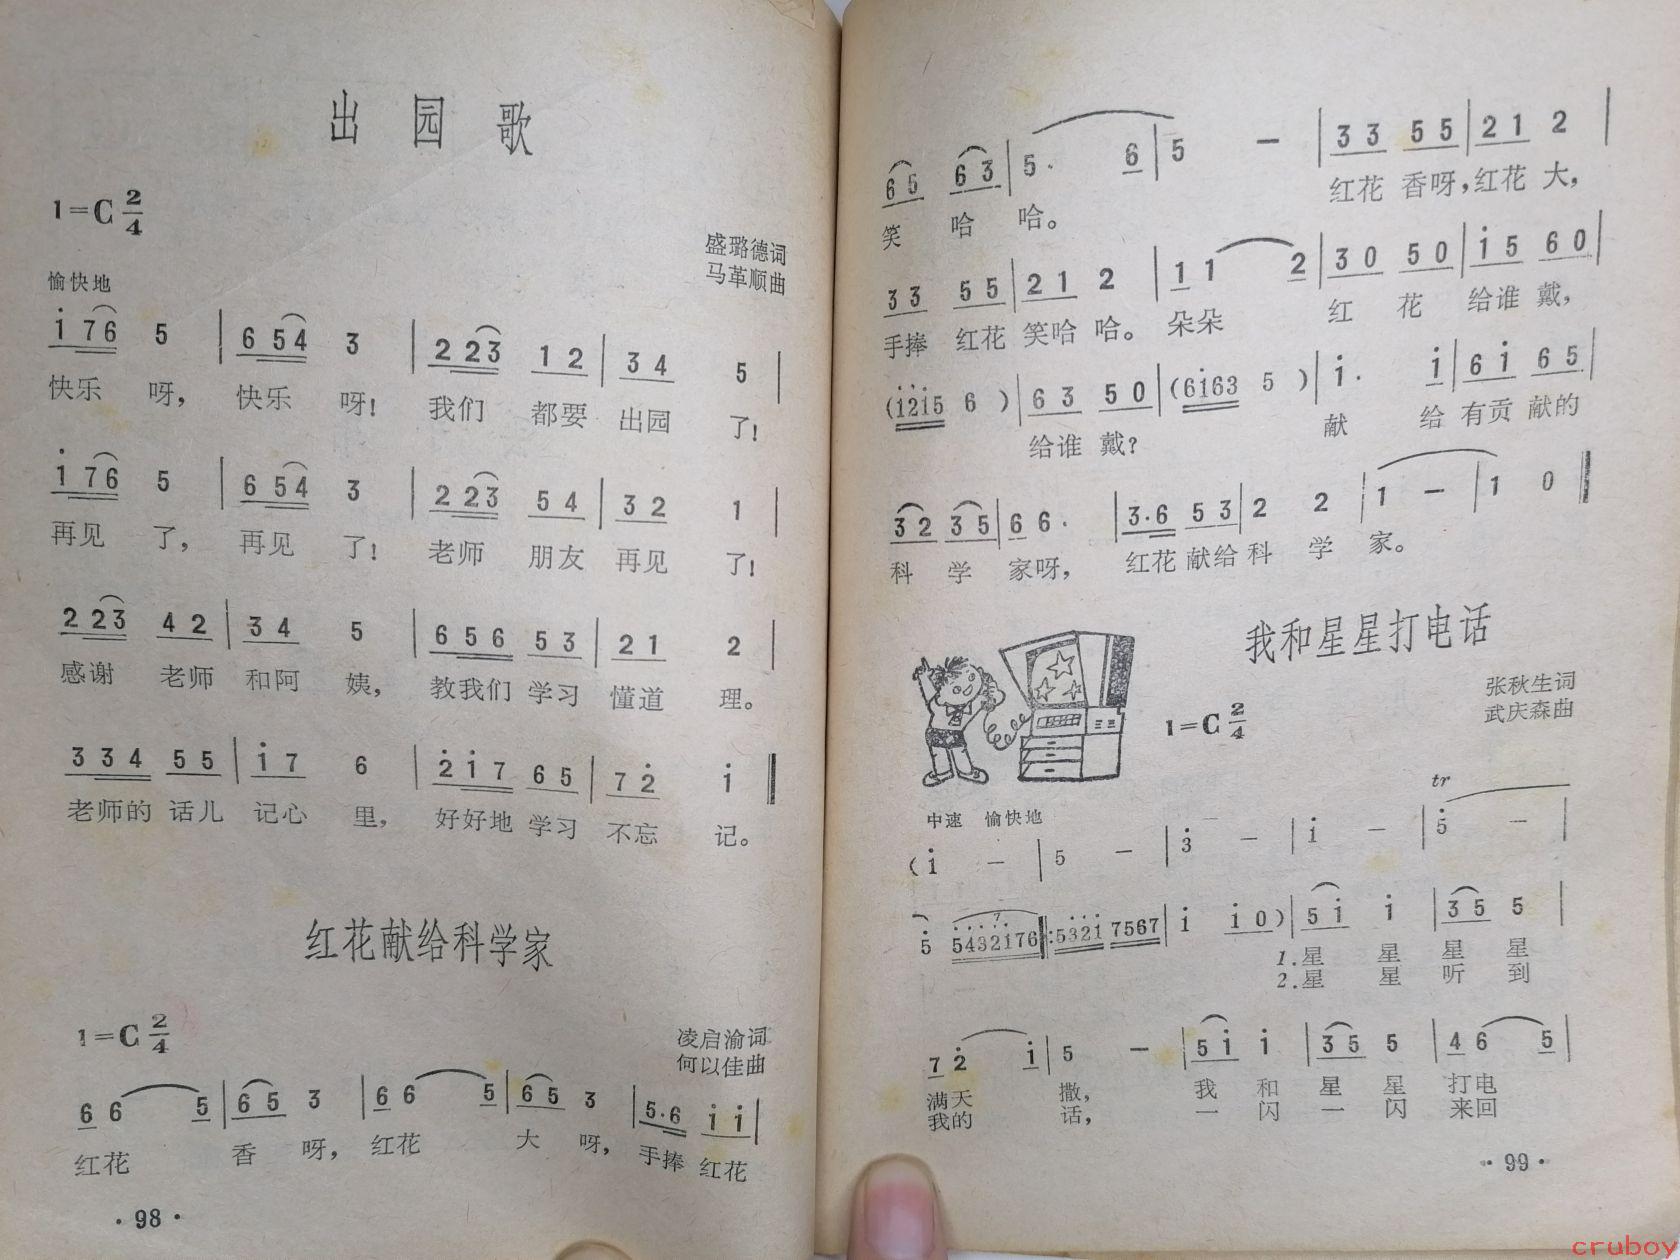 出 园 歌
1=C 2/4
盛璐德词
马革顺曲
愉快地
i 76 5 | 6 54 3 | 2 23 1 2 | 3 4 5 |
快乐 呀， 快乐 呀！ 我们 都要 出园 了！
i 76 5 | 6 54 3 | 2 23 5 4 | 3 2 1 |
再见 了， 再见 了！ 老师 朋友 再见 了！
2 23 4 2 | 3 4 5 | 6 5 6 5 3 | 2 1 2 |
感谢 老师 和阿 姨， 教我们 学习 懂道 理。
3 3 4 5 5 | i 7 6 | 2̇ i 7 6 5 | 7 2̇ i ‖
老师的 话儿 记心 里， 好好地 学习 不忘 记。
红花献给科学家
1=C 2/4
凌启渝词
何以佳曲
6 6 5 | 6 5 3 | 6 6 5 | 6 5 3 | 5·6 i i |
红花 香 呀， 红花 大 呀， 手捧 红花
·98·
6 5 6 3 | 5· 6 | 5 － | 3 3 5 5 | 2 1 2 |
笑 哈 哈。 红花 香呀，红花 大，
3 3 5 5 | 2 1 2 | 1 1 2 | 3 0 5 0 | i 5 6 0 |
手捧 红花 笑哈 哈。 朵朵 红 花 给谁 戴，
(i2̇i5 6 ) | 6 3 5 0 | (6i63 5 ) | i· i | 6 i 6 5 |
给谁 戴？ 献 给 有贡 献的
3 2 3 5 | 6 6· | 3·6 5 3 | 2 2 | 1 － | 1 0 ‖
科 学 家呀， 红花 献给 科 学 家。
我和星星打电话
张秋生词
武庆森曲
1=C 2/4
中速 愉快地
tr
(i － | 5 － | 3̇ － | i － | 5̇ － |
7
5̇ 5̇4̇3̇2̇i76 ‖: 5̇3̇2̇i 7567 | i i 0) | 5 i i | 3 5 5 |
1.星 星 星 星
2.星 星 听 到
7 2̇ i | 5 － | 5 i i | 3 5 5 | 4 6 5 |
满天 撒， 我 和 星 星 打电
我的 话， 一 闪 一 闪 来回
·99·
cruboy